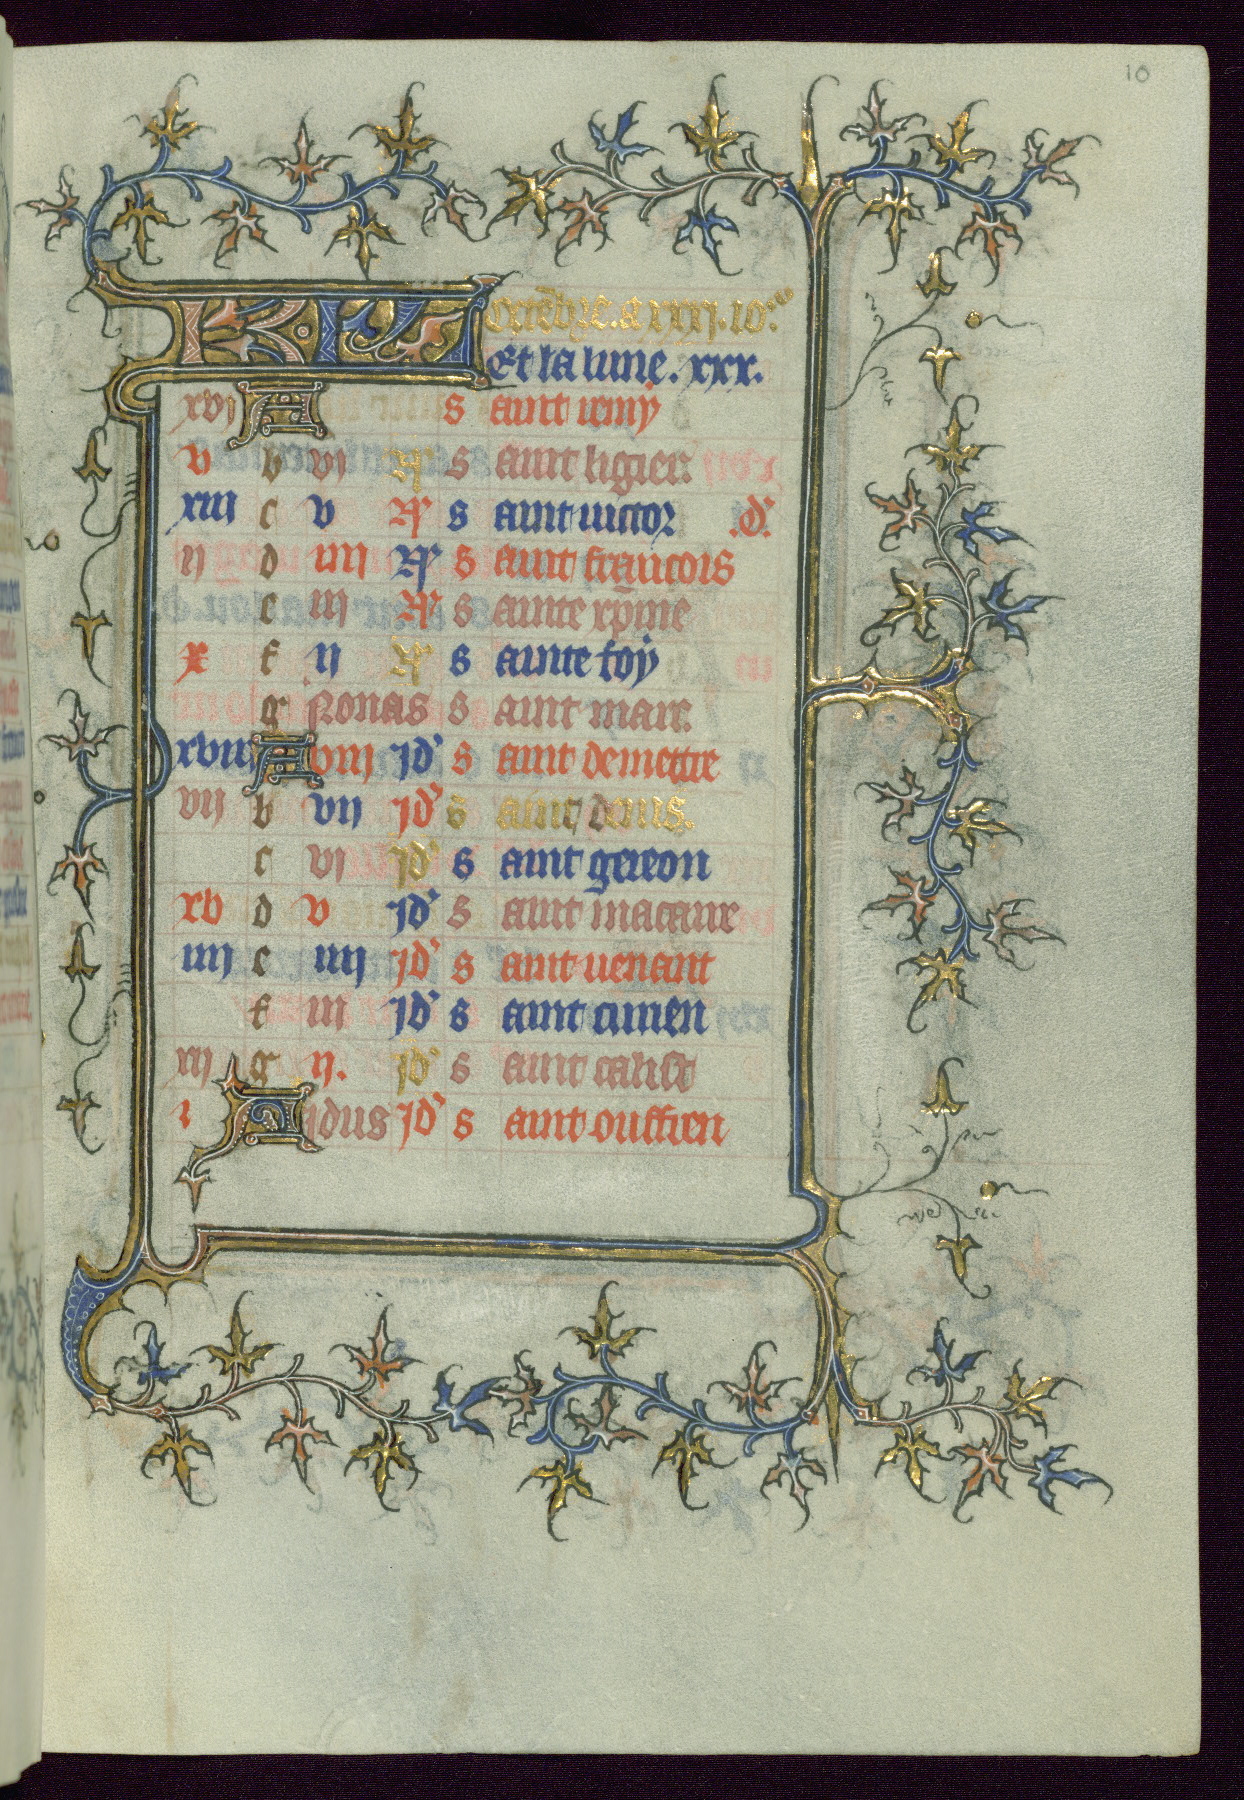 10
KL Octebre. a xxxj. io.rs
Et la lune. xxx.
xvj A s aint remy
v b vj N s aint ligier
xiij c v N s aint uictor .d.
ij d iiij N s aint francois
e iij N s ainte xpine
x f ij N s ainte foy
g Nonas s aint marc
xviij A viij jd s aint demettre
vij b vij jd s aint denis.
c vj jd s aint gereon
xv d v jd s aint macaire
iiij e iiij jd s aint uenant
f iij jd s aint
xij g ij. jd s aint calist
i A idus jd s aint oulfren